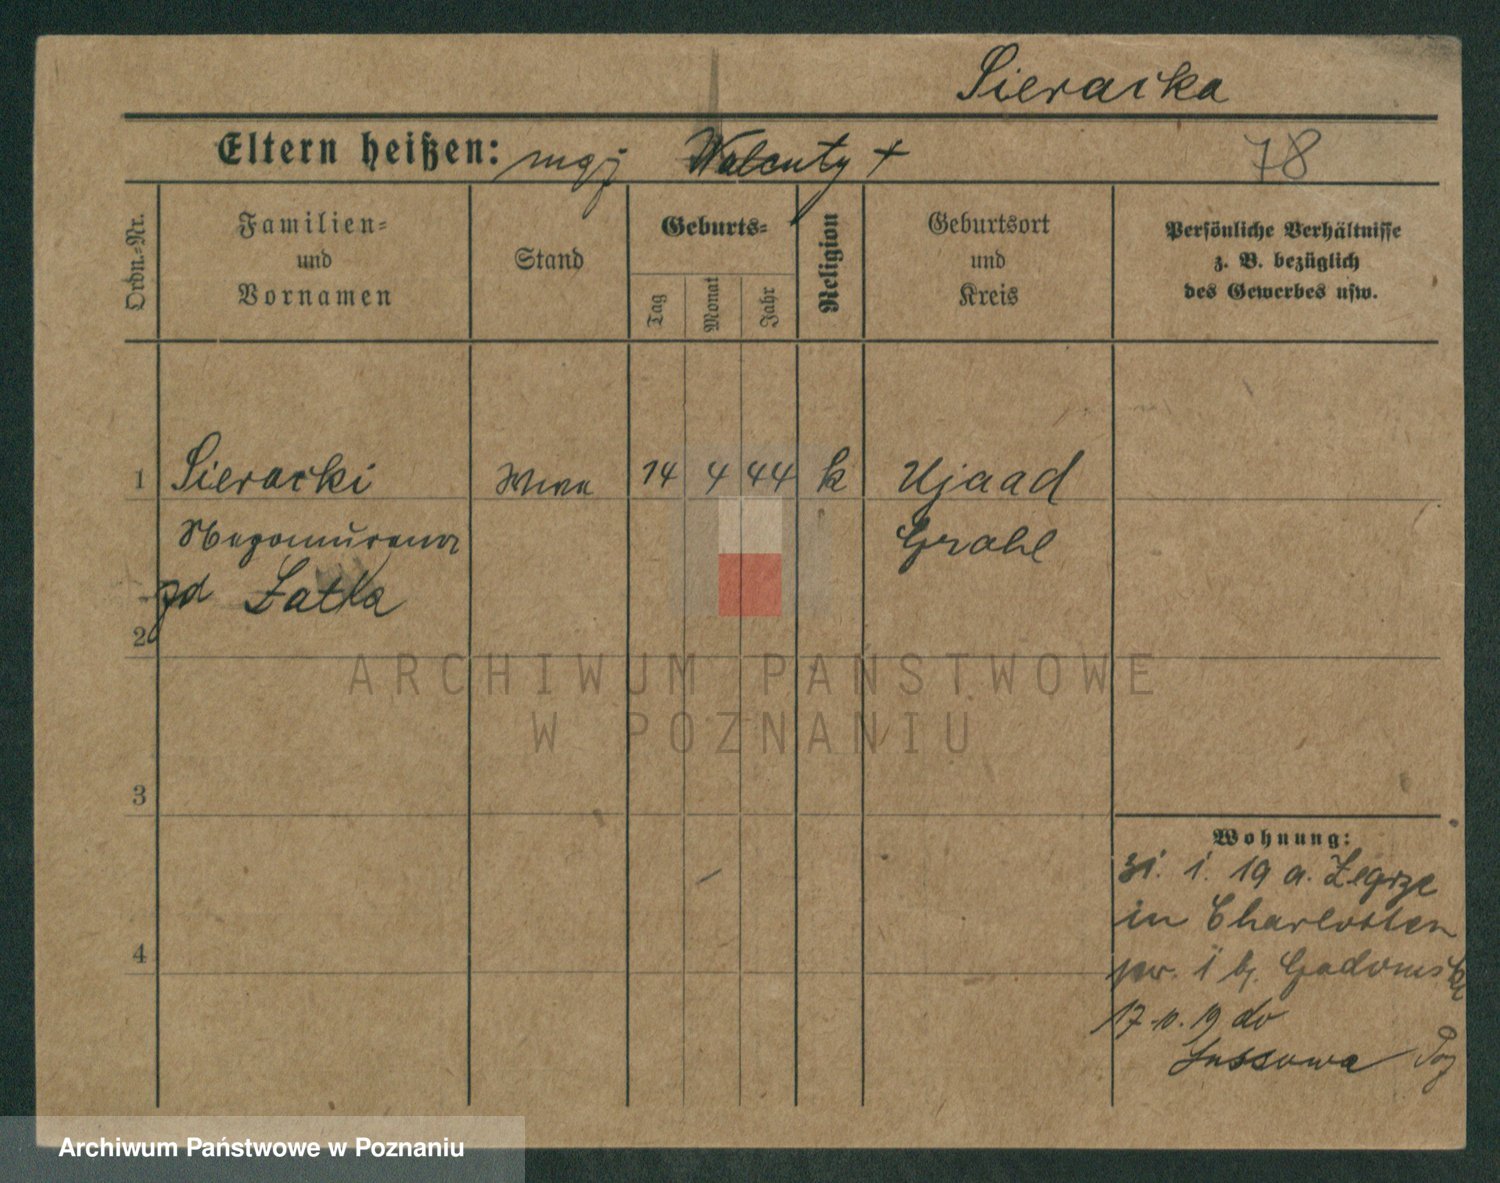 Sieracka
Eltern heißen: mąż Walenty +
78
Ordn.-Nr.
Familien-
und
Vornamen
Stand
Geburts-
Tag
Monat
Jahr
Religion
Geburtsort
und
Kreis
Persönliche Verhältnisse
z. B. bezüglich
des Gewerbes usw.
1 Sieracki 14 4 44 k Ujazd
Nepomucena Grätz
zd Łatka
2
3
4
Wohnung:
31. 1. 19 a. Zegrze
in Charlotten
17.10.19 do
Lussowa
ARCHIWUM PAŃSTWOWE
W POZNANIU
Archiwum Państwowe w Poznaniu